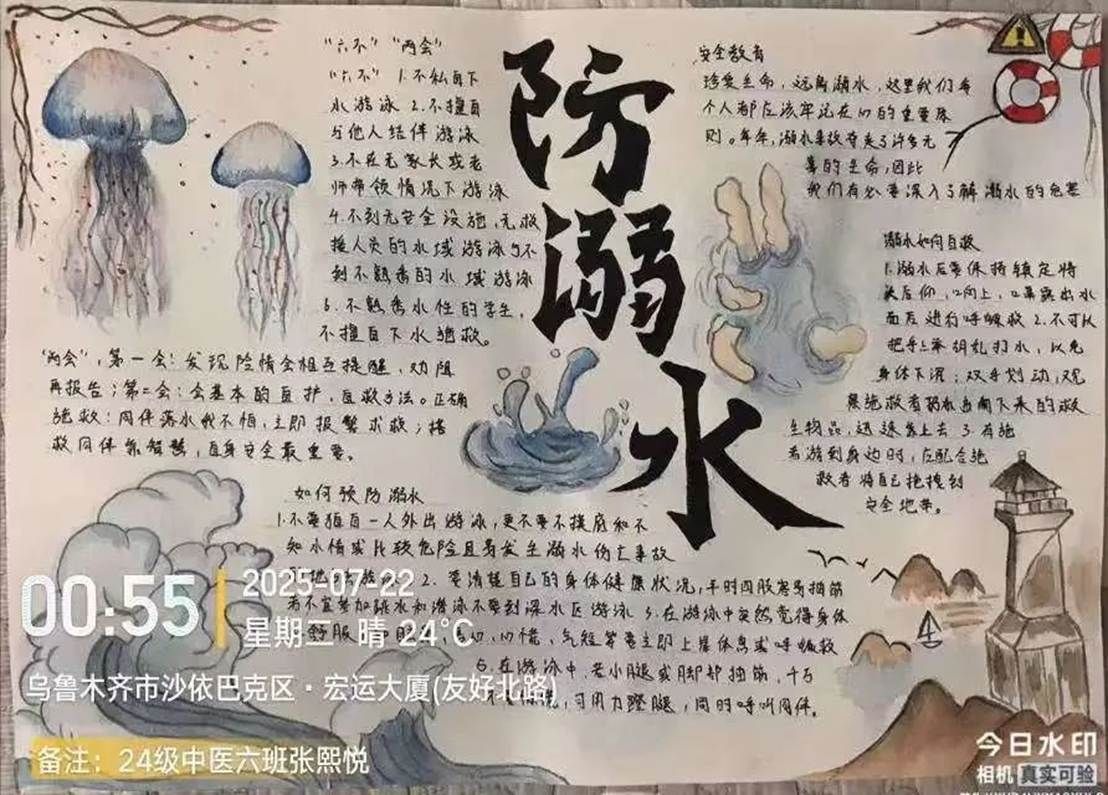 "六不""两会"
"六不" 1.不私自下
水游泳 2.不擅自
与他人结伴游泳
3.不在无家长或老
师带领情况下游泳
4.不到无安全设施,无救
援人员的水域游泳 5不
到不熟悉的水域游泳
6.不熟悉水性的学生,
不擅自下水施救。
"两会",第一会:发现险情会相互提醒,劝阻
再报告;第二会:会基本的自护,自救方法。正确
施救:同伴落水我不怕,立即报警求救;搭
救同伴靠智慧,自身安全最重要。
防溺水
安全教育
珍爱生命,远离溺水,这里我们每
个人都应该牢记在心的重要原
则。年年,溺水事故夺走了许多无
辜的生命,因此
我们有必要深入了解溺水的危害
溺水如何自救
1.溺水后要保持镇定将
头后仰,口向上,口鼻露出水
面后进行呼救 2.不可以
把手上举胡乱打水,以免
身体下沉;双手划动,观
察施救者扔和丢下来的救
生物品,迅速靠上去 3.有施
者游到身边时,应配合施
救者将自己拖拽到
安全地带。
如何预防溺水
1.不要独自一人外出游泳,更不要不摸底和不
知水情或比较危险且易发生溺水伤亡事故
游泳 2.要清楚自己的身体健康状况,平时四肢容易抽筋
者不宜参加跳水和游泳不要到深水区游泳 3.在游泳中突然觉得身体
舒服 心慌,气短等要立即上岸休息或呼救
5.在游泳中,若小腿或脚部抽筋,千万
可用力蹬腿,同时呼叫同伴。
00:55
2025-07-22
星期二·晴 24°C
乌鲁木齐市沙依巴克区·宏运大厦(友好北路)
备注：24级中医六班张熙悦
今日水印
相机 真实可验